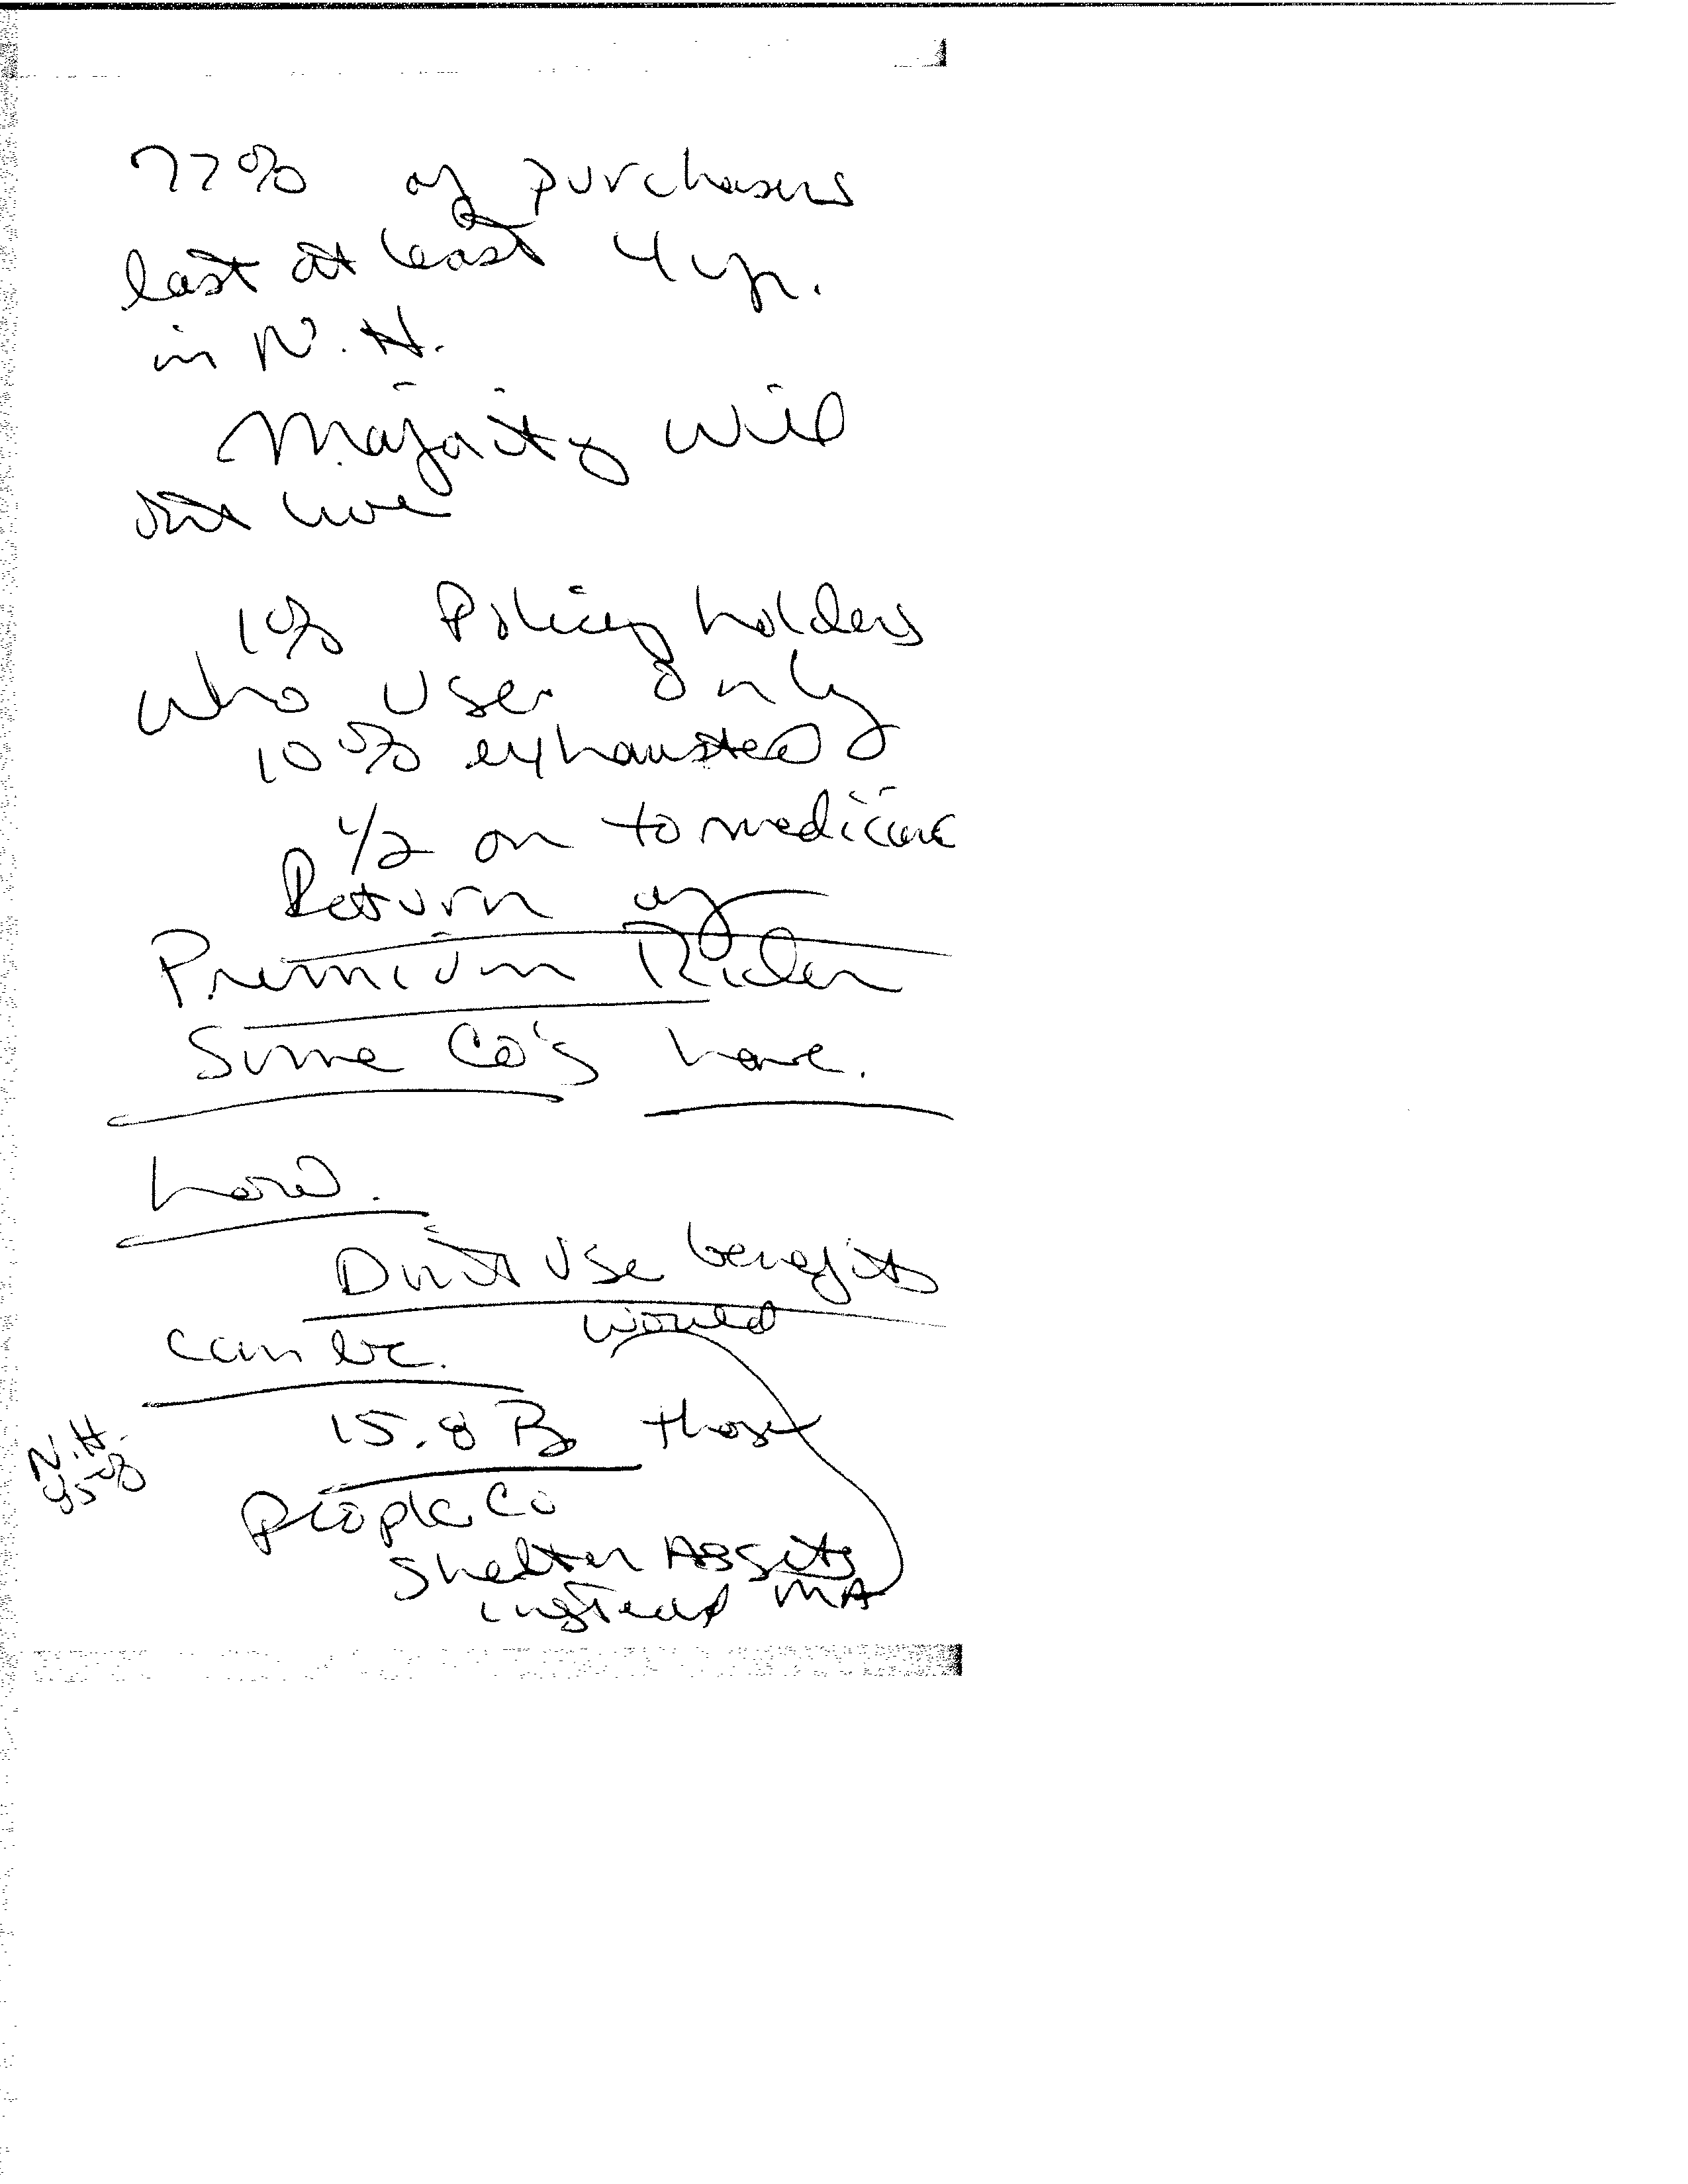 77% of purchasers
last at least 4 yr.
in N.H.
Majority will
out live
1% Policy holders
who use only
10% exhausted
1/2 on to medicine
Return of
Premium Rider
Some Co's have.
how.
Don't use benefits
can be. would
15.8 B those
N.H.
people Co
Shelter Assets
instead MA